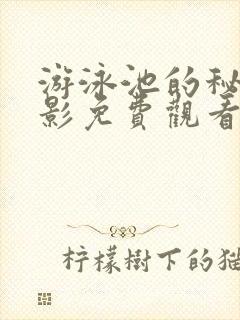 游泳池的秘
影免費觀看
柠檬樹下的猫